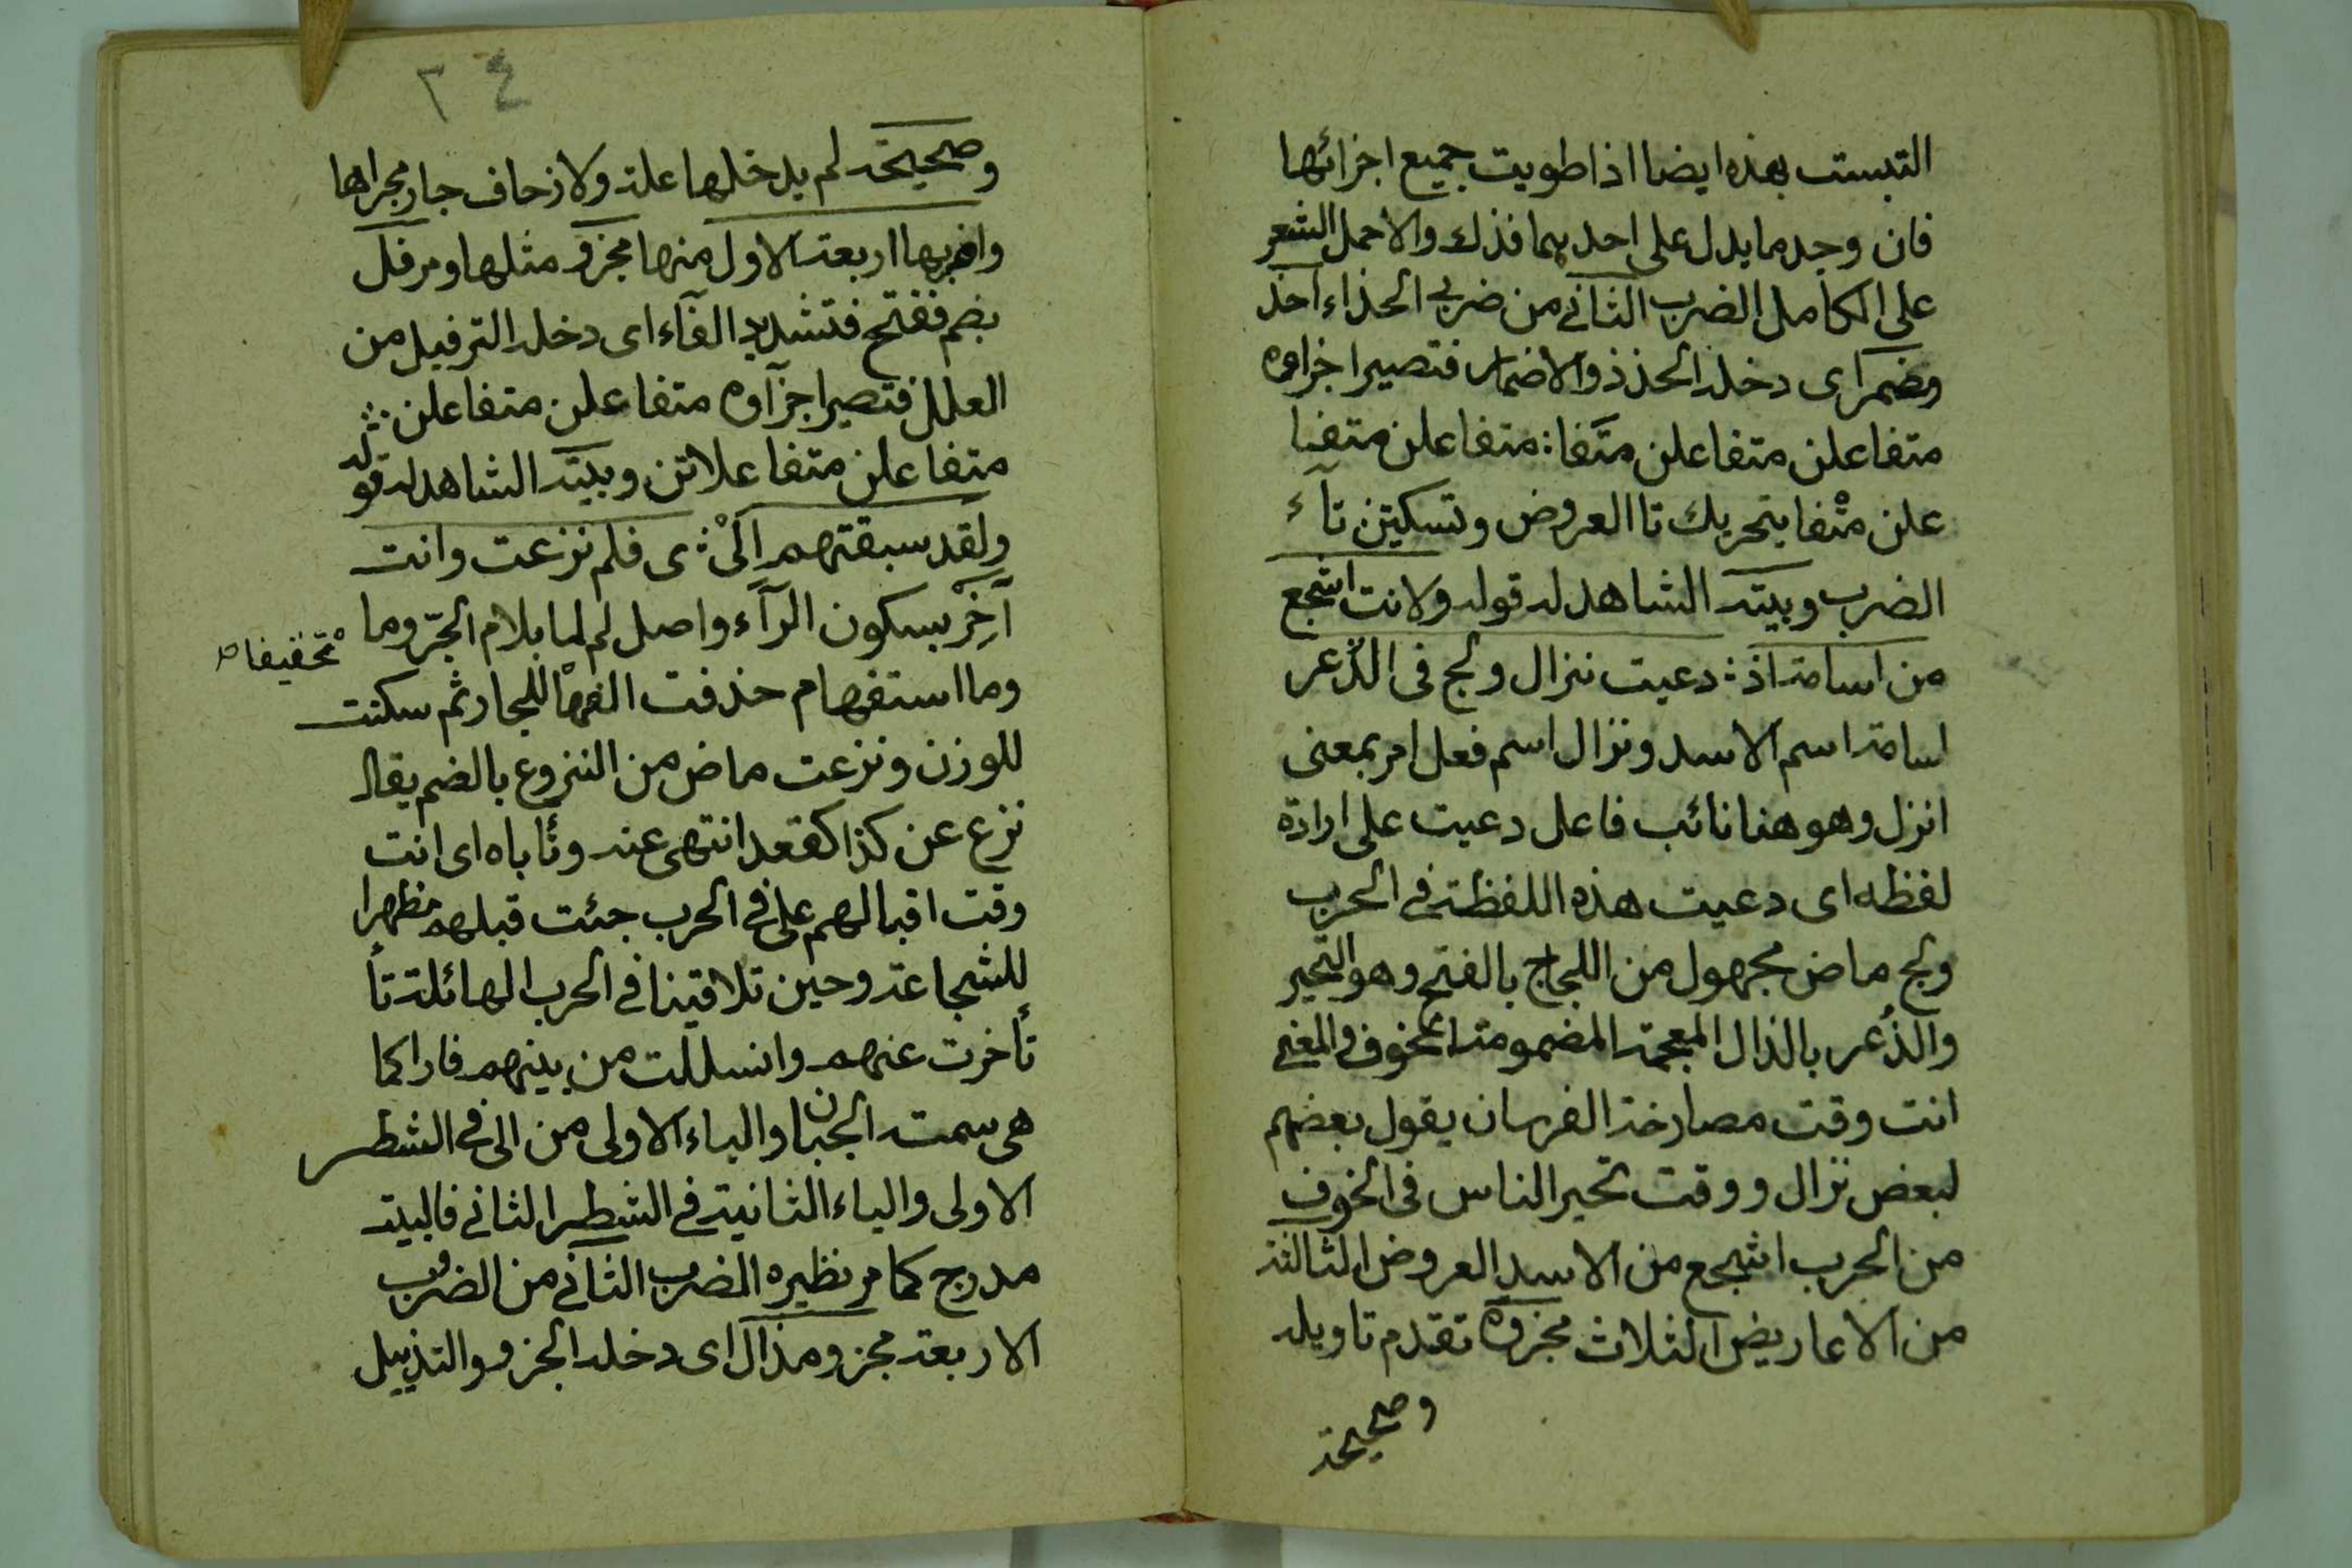 التبست بهذه ايضا اذا طويت جميع اجزائها
فان وجد ما يدل على احديهما فذلك والا حمل الشعر
على الكامل الضرب الثاني من ضربي الحذاء احذ
مضمر اى دخله الحذذ والاضمار فتصير اجزاوه
متفاعلن متفاعلن متَفا : متفاعلن متفا
علن متْفا بتحريك تا العروض وتسكين تآء
الضرب وبيته الشاهد له قوله ولانت اشجع
من اسامة اذ : دعيت نزال ولج فى الذُعر
اسامة اسم الاسد ونزال اسم فعل امر بمعنى
انزل وهو هنا نائب فاعل دعيت على ارادة
لفظه اى دعيت هذه اللفظة في الحرب
ولج ماض مجهول من اللجاج بالفتح وهو التحير
والذُعر بالذال المعجمة المضمومة الخوف والمعنى
انت وقت مصارخة الفرسان يقول بعضهم
لبعض نزال ووقت تحير الناس فى الخوف
من الحرب اشجع من الاسد العروض الثالثة
من الاعاريض الثلاث مجزوة تقدم تاويله
وصحيحة
٢٤
وصحيحة لم يدخلها علة ولا زحاف جار مجراها
واضربها اربعة الاول منها مجزو مثلها ومرفل
بضم ففتح فتشديد الفآء اى دخله الترفيل من
العلل فتصير اجزآوه متفاعلن متفاعلن :
متفاعلن متفاعلاتن وبيته الشاهد له قوله
ولقد سبقتهم اِلَىْ : ى فلم نزعت وانت
آخِرْ بسكون الرآء واصل لم لما بلام الجرّ وما
تخفيفا صح
وما استفهام حذفت الفها للجار ثم سكنت
للوزن ونزعت ماض من النزوع بالضم يقال
نزع عن كذا كقعد انتهى عنه وتأباه اى انت
وقت اقبالهم على في الحرب جئت قبلهم مظهرا
للشجاعة وحين تلاقينا في الحرب الهائلة تأ
تأخرت عنهم وانسللت من بينهم فارا كما
هى سمت الجبان والياء الاولى من الى في الشطر
الاولى والياء الثانية في الشطر الثاني فالبيت
مدرج كما مر نظيره الضرب الثاني من الضروب
الاربعة مجزو ومذال اى دخله الجزو والتذييل